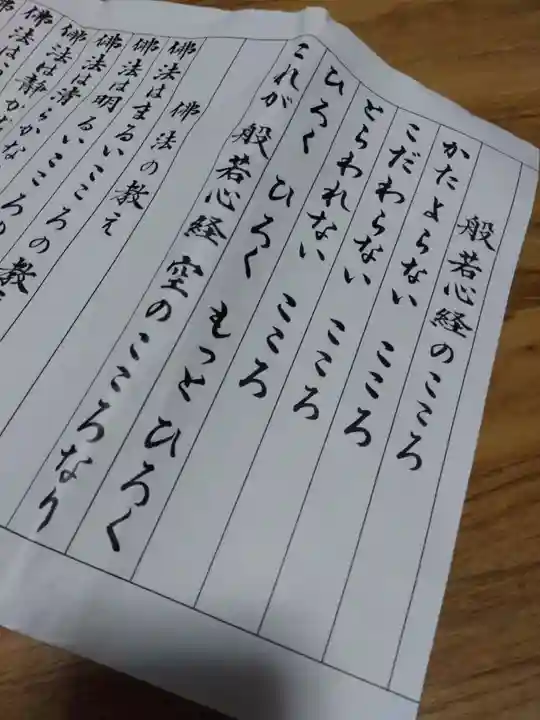 般若心経のこころ
かたよらない こころ
こだわらない こころ
とらわれない こころ
ひろく ひろく もっとひろく
これが 般若心経 空のこころなり
佛法の教え
佛法はまるいこころの教え
佛法は明るいこころの教え
佛法は清らかなこころの
佛法は静かな
佛法は